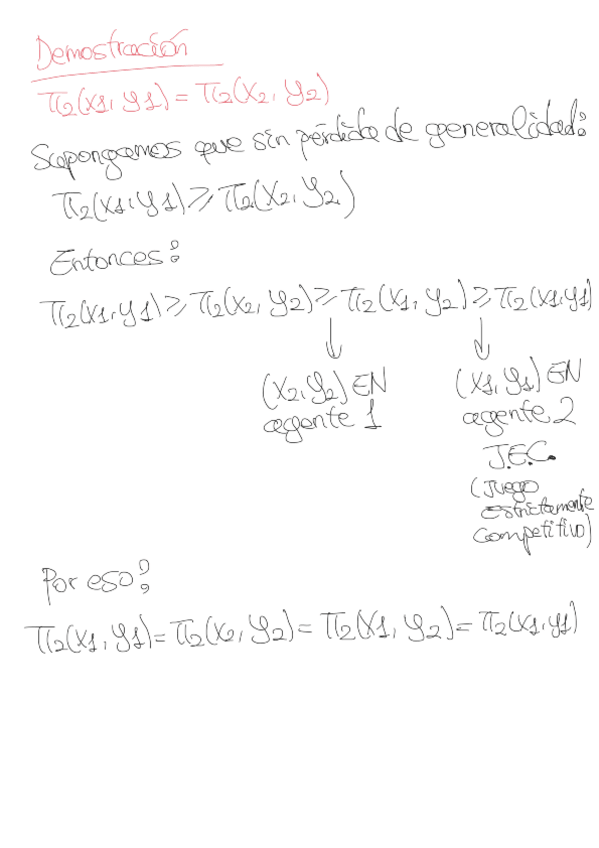 Demostración
π2(x1, y1) = π2(x2, y2)
Supongamos que sin pérdida de generalidad:
π2(x1, y1) ≥ π2(x2, y2)
Entonces:
π2(x1, y1) ≥ π2(x2, y2) ≥ π2(x1, y2) ≥ π2(x1, y1)
(x2, y2) EN (x1, y1) EN
agente 1 agente 2
J.E.C.
(Juego
estrictamente
competitivo)
Por eso:
π2(x1, y1) = π2(x2, y2) = π2(x1, y2) = π2(x1, y1)